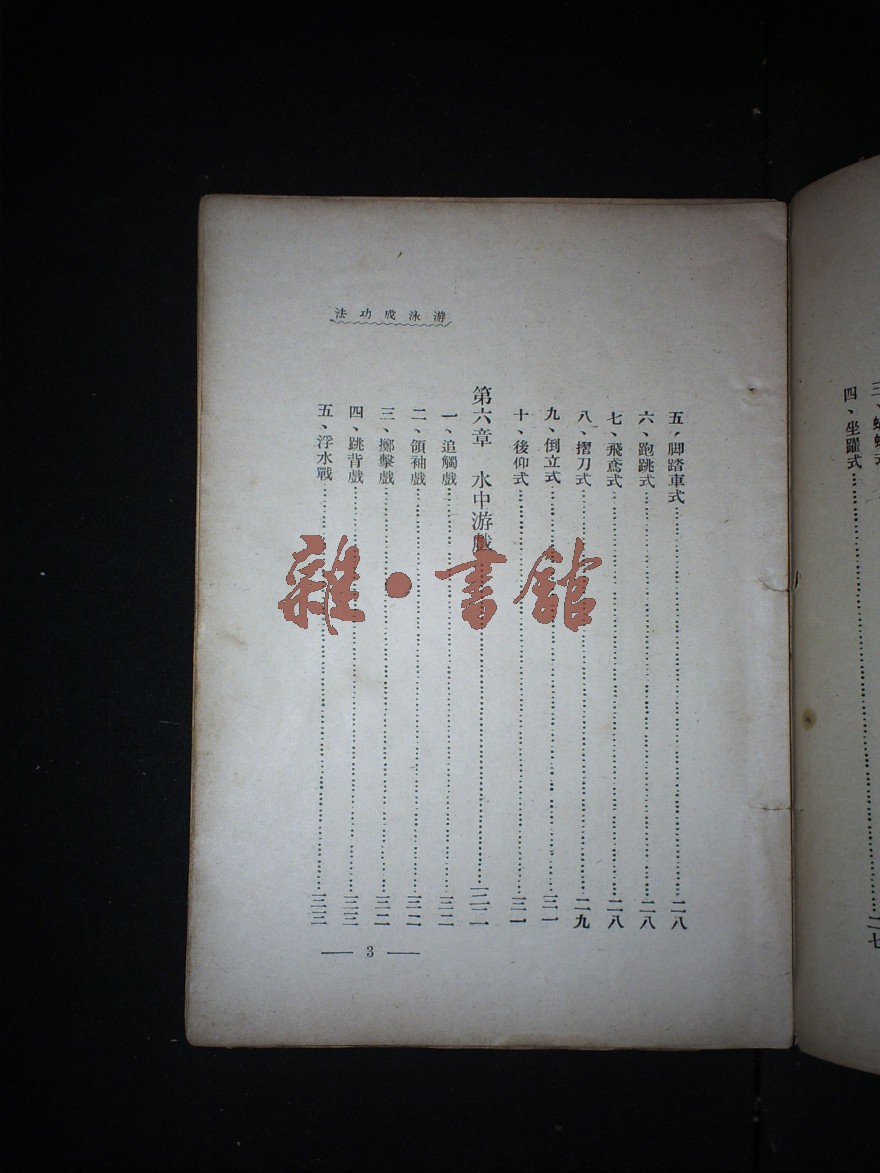 游泳成功法
五、脚踏車式…二八
六、跑跳式…二八
七、飛鳶式…二八
八、摺刀式…二九
九、倒立式…三一
十、後仰式…三一
第六章 水中游戲…三二
一、追觸戲…三二
二、領袖戲…三二
三、擲擊戲…三二
四、跳背戲…三三
五、浮水戰…三三
— 3 —
四、坐躍式…二七
雜·書館